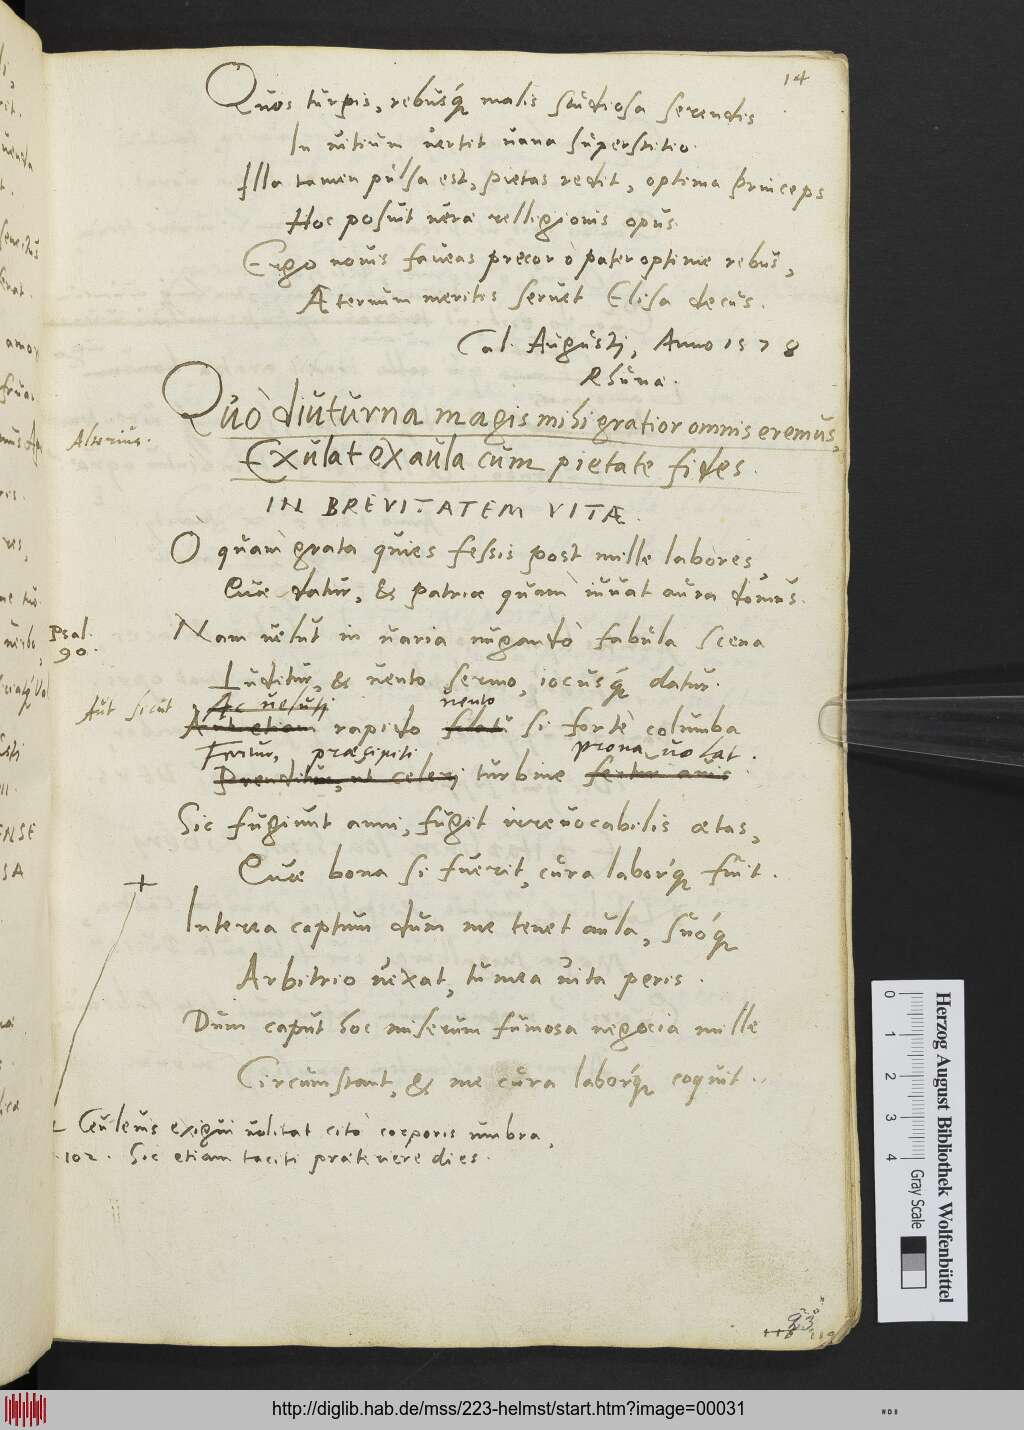 14
Quos turpis, rebusq́ malis studiosa serendis
In vitium vertit vana superstitio.
Illa tamen pulsa est, pietas redit, optima princeps
Hoc posuit verae relligionis opus.
Ergo novis faveas precor ò pater optime rebus,
Æternum meritis servet Elisa decus.
Cal. Augusti, Anno 1578
Rhuna.
Quò diuturna magis mihi gratior omnis eremus,
Alterius.
Exulat ex aula cum pietate fides.
IN BREVITATEM VITÆ.
O quàm grata quies fessis post mille labores,
Quae datur, & patriae quàm iuvat aura domus.
Psal. 90.
Nam velut in varia nugando fabula scena
Luditur, & vento sermo, iocusq́ datur.
Aut sicut
Ac veluti
vento
Aut etiam rapido flatu si fortè columba
Fertur, praecipiti
prona volat.
Prenditur, ut celeri turbine fertur avis.
Sic fugiunt anni, fugit irrevocabilis aetas,
Quae bona si fuerit, cura laborq́ fuit.
Interea captum dum me tenet aula, suoq́
Arbitrio vexat, tu mea vita peris.
Dum caput hoc miserum fumosa negocia mille
Circumstant, & me cura laborq́ coquit.
Ceu levis exigui volitat citò corporis umbra,
102. Sic etiam taciti praeteriere dies.
0 1 2 3 4
Gray Scale
Herzog August Bibliothek Wolfenbüttel
http://diglib.hab.de/mss/223-helmst/start.htm?image=00031